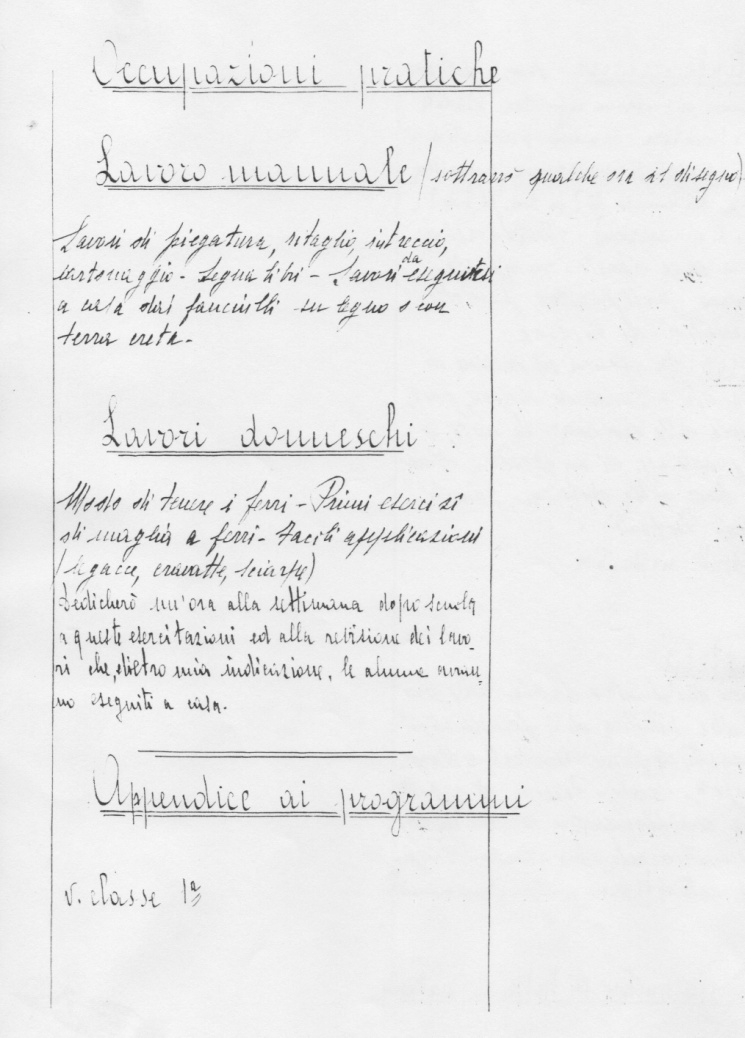 Occupazioni pratiche
Lavoro manuale (sottrarrò qualche ora al disegno)
Lavori di piegatura, ritaglio, intreccio,
cartonaggio - Segna libri - Lavori da eseguirsi
a casa dai fanciulli su legno o con
terra creta -
Lavori donneschi
Modo di tenere i ferri - Primi esercizi
di maglia a ferri - Facili applicazioni
(legacce, cravatte, sciarpe)
Dedicherò un'ora alla settimana dopo scuola
a queste esercitazioni ed alla revisione dei lavo-
ri che, dietro mia indicazione, le alunne avran-
no eseguiti a casa.
Appendice ai programmi
v. classe 1ª